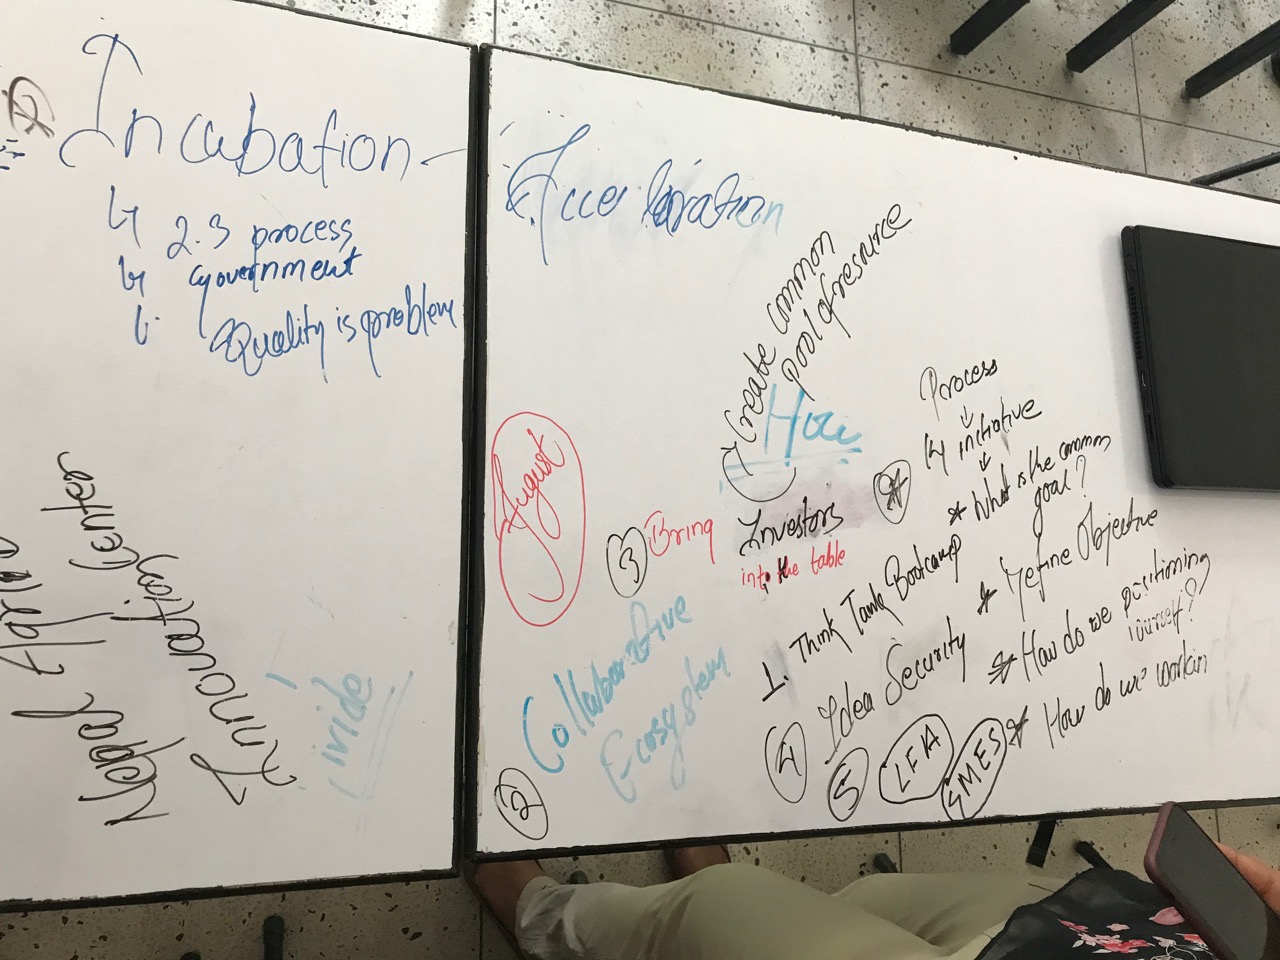 Incubation
2.3 process
government
Quality is problem
Nepal Agriculture
Innovation Center
Accelaration
Create common
pool of resource
How
August
3 Bring Investors
into the table
Process
initiative
* What is the common
goal?
1. Think Tank Bootcamp
* refine Objective
4 Idea Security
* How do we positioning
yourself?
* How do we workin
5 LFIA
SMES
2 Collaborative
Ecosystem